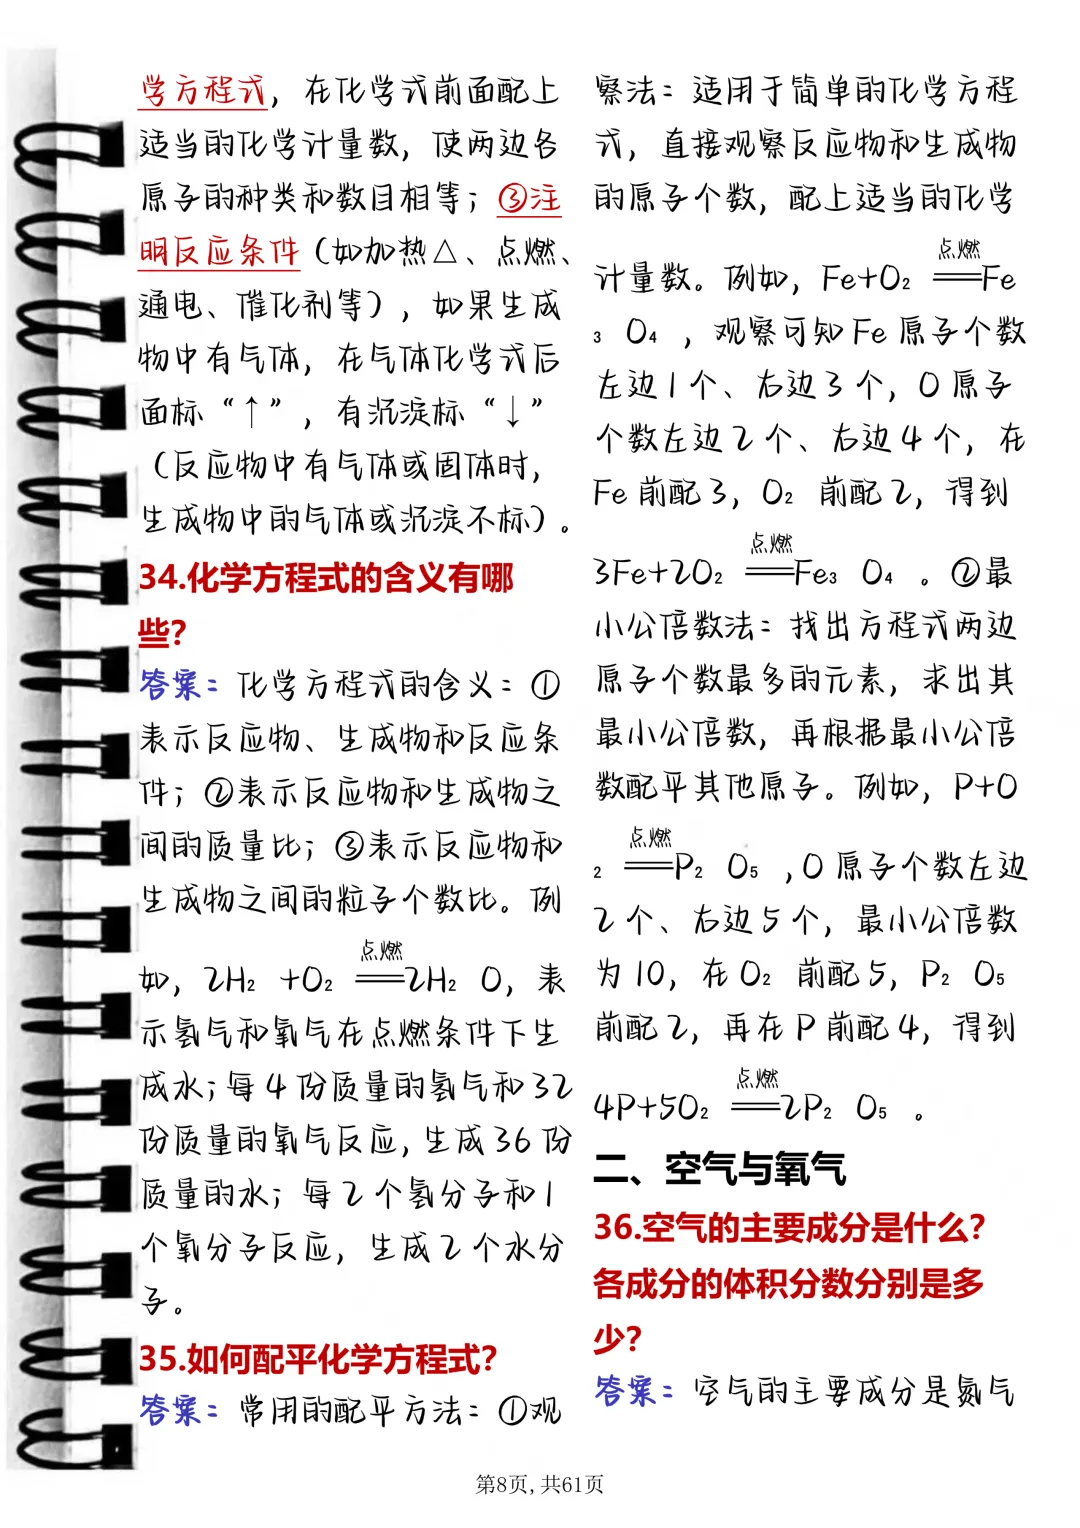 学方程式，在化学式前面配上
适当的化学计量数，使两边各
原子的种类和数目相等；③注
明反应条件（如加热△、点燃、
通电、催化剂等），如果生成
物中有气体，在气体化学式后
面标“↑”，有沉淀标“↓”
（反应物中有气体或固体时，
生成物中的气体或沉淀不标）。
34.化学方程式的含义有哪
些？
答案：化学方程式的含义：①
表示反应物、生成物和反应条
件；②表示反应物和生成物之
间的质量比；③表示反应物和
生成物之间的粒子个数比。例
点燃
如，2H₂ +O₂ ══2H₂ O，表
示氢气和氧气在点燃条件下生
成水；每4份质量的氢气和32
份质量的氧气反应，生成36份
质量的水；每2个氢分子和1
个氧分子反应，生成2个水分
子。
35.如何配平化学方程式？
答案：常用的配平方法：①观
察法：适用于简单的化学方程
式，直接观察反应物和生成物
的原子个数，配上适当的化学
点燃
计量数。例如，Fe+O₂ ══Fe
₃ O₄ ，观察可知Fe原子个数
左边1个、右边3个，O原子
个数左边2个、右边4个，在
Fe前配3，O₂ 前配2，得到
点燃
3Fe+2O₂ ══Fe₃ O₄ 。②最
小公倍数法：找出方程式两边
原子个数最多的元素，求出其
最小公倍数，再根据最小公倍
数配平其他原子。例如，P+O
点燃
₂ ══P₂ O₅ ,O原子个数左边
2个、右边5个，最小公倍数
为10，在O₂ 前配5，P₂ O₅
前配2，再在P前配4，得到
点燃
4P+5O₂ ══2P₂ O₅ 。
二、空气与氧气
36.空气的主要成分是什么？
各成分的体积分数分别是多
少？
答案：空气的主要成分是氮气
第8页,共61页